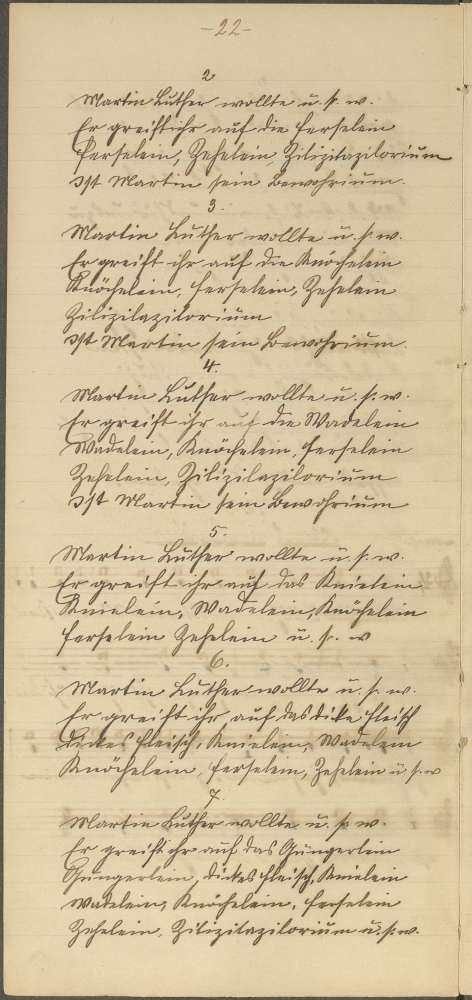 -22-
2
Martin Luther wollte u. s. w.
Er greift ihr auf die Ferselein
Ferselein, Zehelein, Zilizilazilorium
Ist Martin sein Bewohrium.
3.
Martin Luther wollte u. s. w.
Er greift ihr auf die Knöchelein
Knöchelein, Ferselein, Zehelein
Zilizilazilorium
Ist Martin sein Bewohrium.
4.
Martin Luther wollte u. s. w.
Er greift ihr auf die Wadelein
Wadelein, Knöchelein, Ferselein
Zehelein, Zilizilazilorium
Ist Martin sein Bewohrium
5.
Martin Luther wollte u. s. w.
Er greift ihr auf das Knielein
Knielein, Wadelein, Knöchelein
Ferselein Zehelein u. s. w
6.
Martin Luther wollte u. s. w.
Er greift ihr auf das dicke Fleisch
Dickes Fleisch, Knielein, Wadelein
Knöchelein, Ferselein, Zehelein u. s. w
7.
Martin Luther wollte u. s. w.
Er greift ihr auf das
dickes Fleisch, Knielein
Wadelein, Knöchelein, Ferselein
Zehelein, Zilizilazilorium u. s. w.